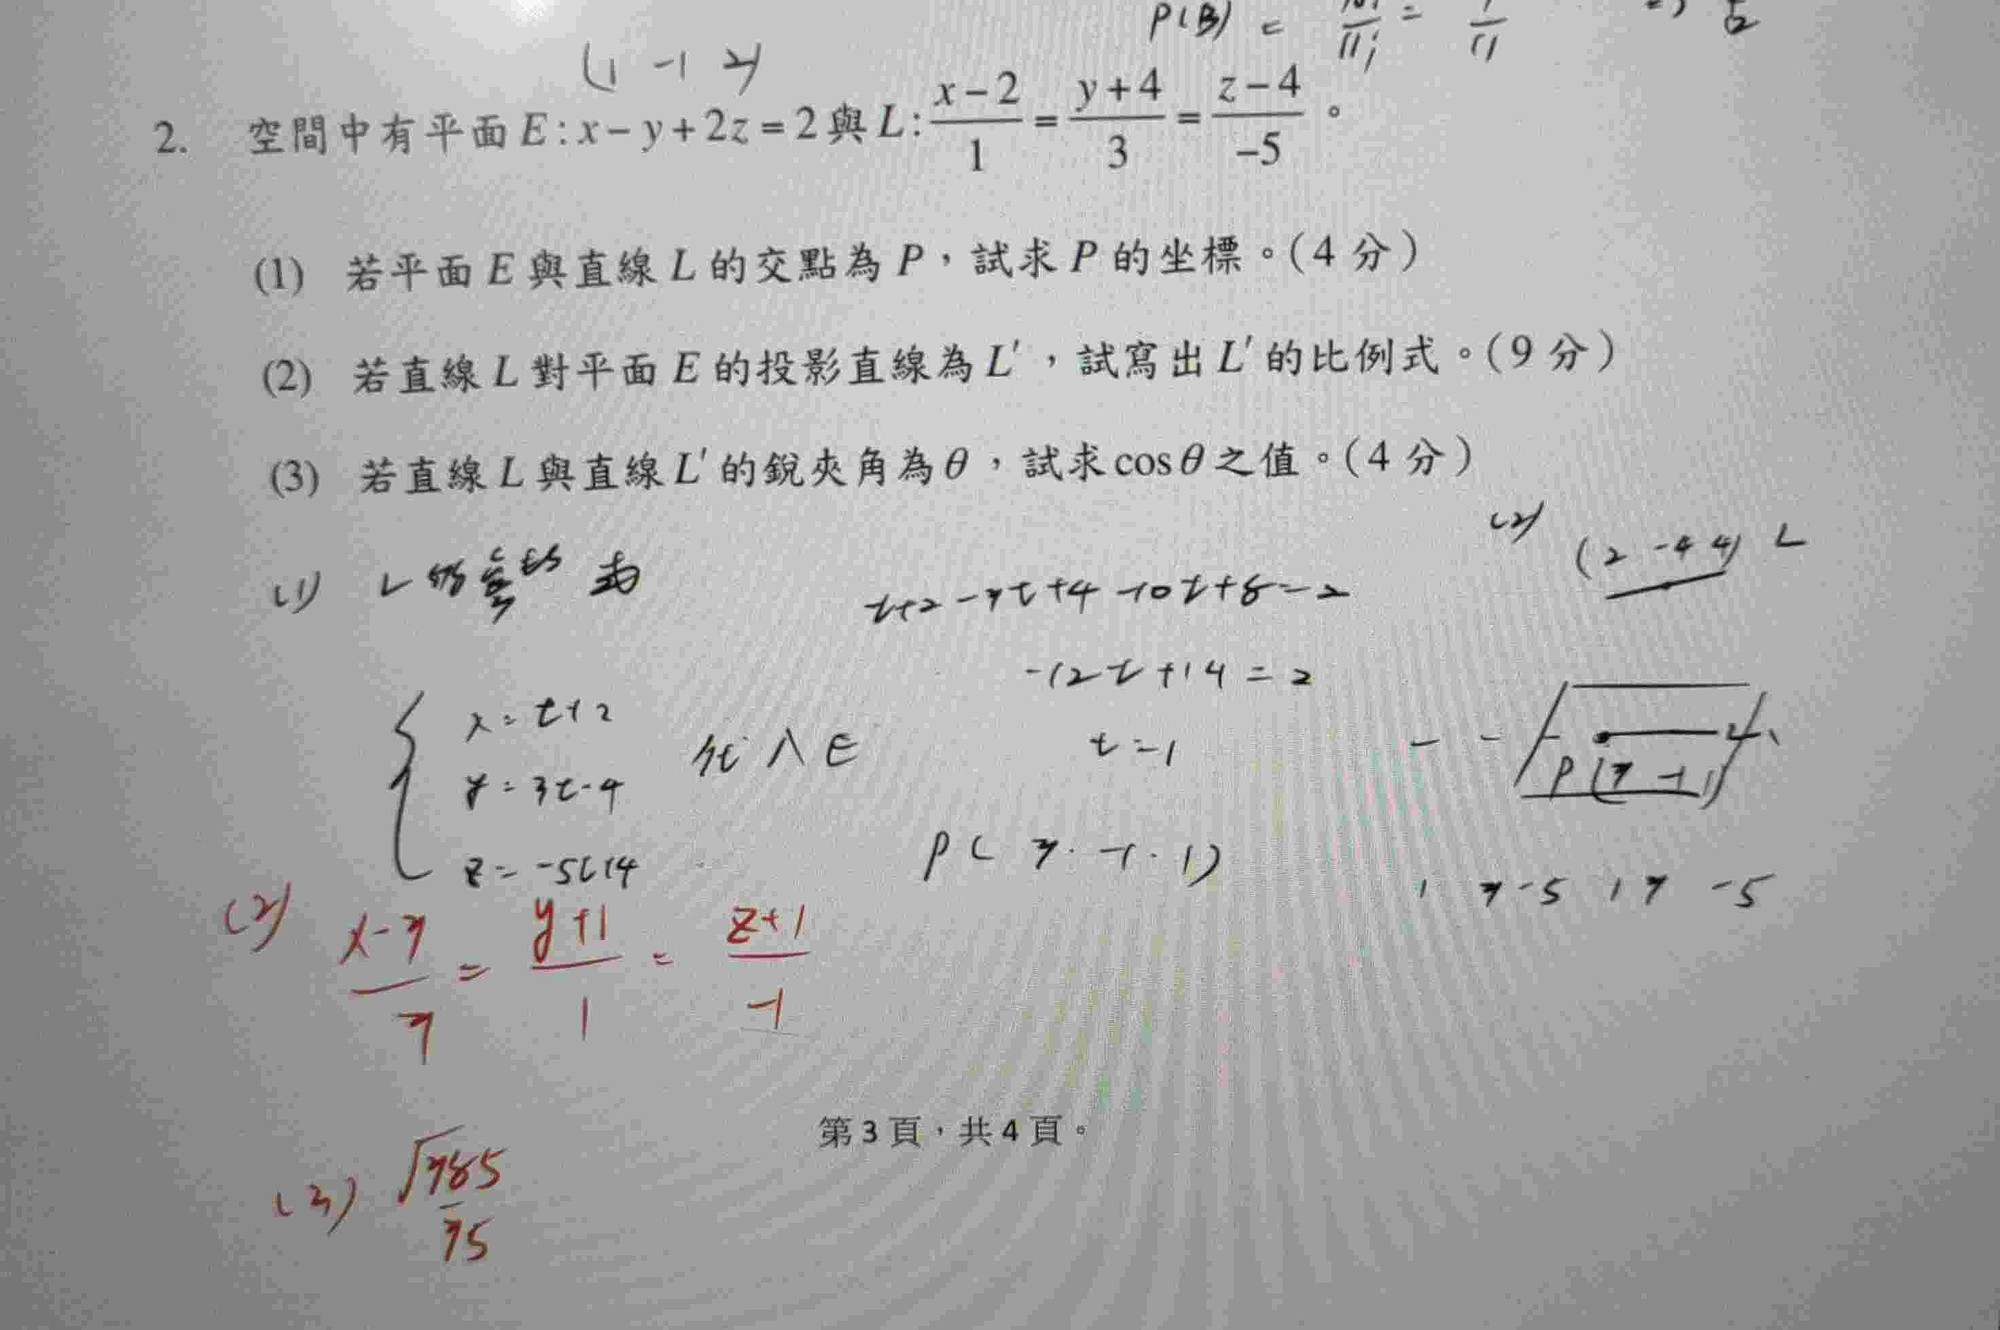 P(B) =
(1 -1 2)
2. 空間中有平面 E:x-y+2z=2與 L:\frac{x-2}{1}=\frac{y+4}{3}=\frac{z-4}{-5}。
(1) 若平面 E 與直線 L 的交點為 P,試求 P 的坐標。(4 分)
(2) 若直線 L 對平面 E 的投影直線為 L',試寫出 L' 的比例式。(9 分)
(3) 若直線 L 與直線 L' 的銳夾角為θ,試求cosθ之值。(4 分)
(1) L 的
t+2-3t+4-10t+8=2
(2) (2 -4 4) L
-12t+14=2
x=t+2
y=3t-4
z=-5t+4
代入E
t=1
P(3 -1 1)
P(3.-1.1)
1 3 -5 1 3 -5
(2) \frac{x-3}{7}=\frac{y+1}{1}=\frac{z+1}{-1}
第3頁,共4頁。
(3) \frac{\sqrt{785}}{35}